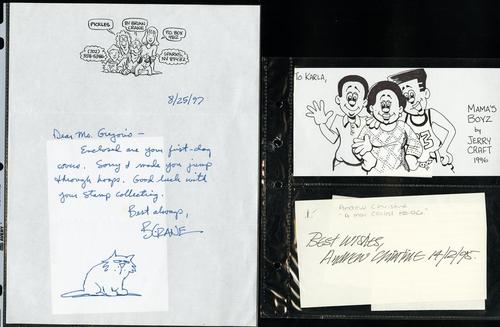 PICKLES
BY BRIAN
CRANE
P.O. BOX
SPARKS,
8/25/97
Dear Ms. Gregorio –
Enclosed are your first-day
covers. Sorry I made you jump
through hoops. Good luck with
your stamp collecting.
Best always,
B CRANE
To KARLA,
MAMA'S
BOYZ
by
JERRY
CRAFT
1996
Andrew Christine
BEST WISHES,
ANDREW CHRISTINE 14/12/95.